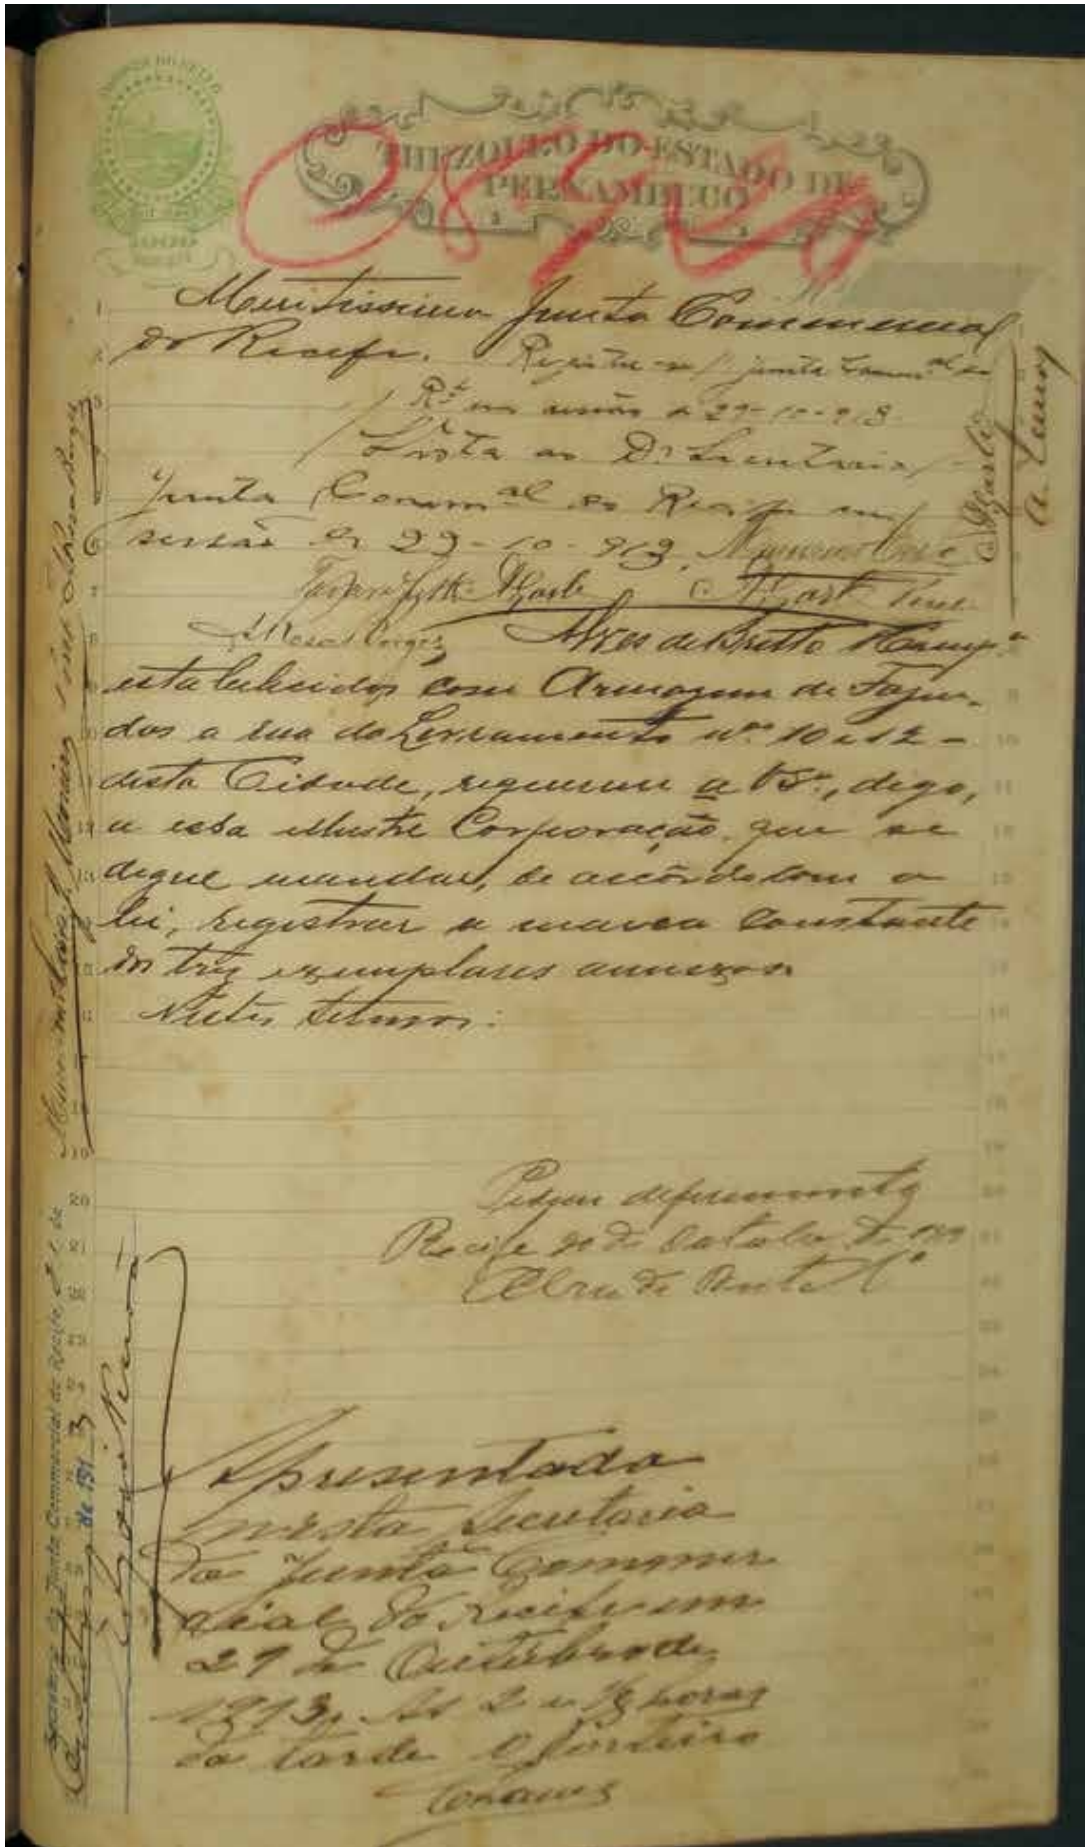 THEZOURO DO ESTADO DE
PERNAMBUCO
Meritissima Junta Commercial
do Recife.
Registre-se Junta Comm.al do
R.e em sessão de 29-10-913
Vista ao Dr. Secretario
Junta Comm.al do Recife em
sessão de 29-10-913.
Alves de Britto & Comp.a
estabelecidos com Armazem de Fazen-
das a rua do Livramento nº 10 e 12 -
desta Cidade, requerem a VS.a, digo,
a essa illustre Corporação, que se
digne mandar, de accôrdo com a
lei, registrar a marca constante
dos trez exemplares annexos
Nestes termos:
Pedem deferimento
Recife de Outubro de
Alves de Britto & C.a
Apresentado
nesta Secretaria
da Junta Commer
cial do Recife em
29 de Outubro de
1913, As 2 e 1/2 horas
da tarde O Porteiro
Secretaria da Junta Commercial do Recife, 31 de
de 1913